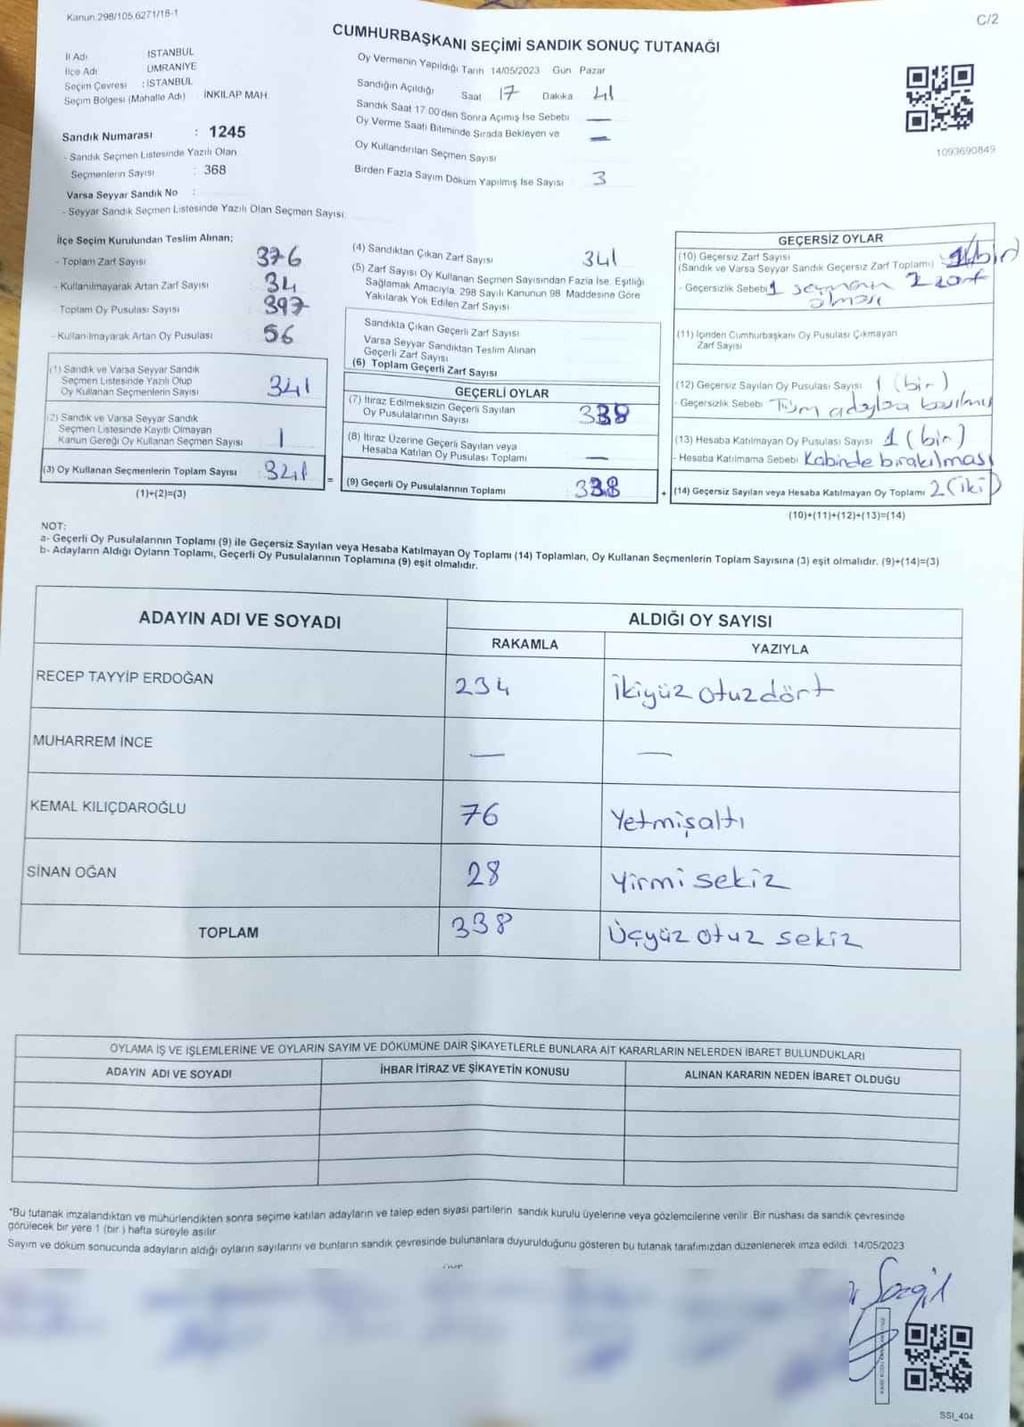 Kanun.298/105,6271/18-1
C/2
CUMHURBAŞKANI SEÇİMİ SANDIK SONUÇ TUTANAĞI
İl Adı İSTANBUL
İlçe Adı ÜMRANİYE
Seçim Çevresi : İSTANBUL
Seçim Bölgesi (Mahalle Adı) İNKILAP MAH.
Sandık Numarası : 1245
- Sandık Seçmen Listesinde Yazılı Olan
Seçmenlerin Sayısı : 368
Varsa Seyyar Sandık No :
- Seyyar Sandık Seçmen Listesinde Yazılı Olan Seçmen Sayısı:
Oy Vermenin Yapıldığı Tarih 14/05/2023 Gün Pazar
Sandığın Açıldığı Saat 17 Dakika 41
Sandık Saat 17:00'den Sonra Açımış İse Sebebi —
Oy Verme Saati Bitiminde Sırada Bekleyen ve —
Oy Kullandırılan Seçmen Sayısı
Birden Fazla Sayım Döküm Yapılmış İse Sayısı 3
1093690849
İlçe Seçim Kurulundan Teslim Alınan;
- Toplam Zarf Sayısı 376
- Kullanılmayarak Artan Zarf Sayısı 34
- Toplam Oy Pusulası Sayısı 397
- Kullanılmayarak Artan Oy Pusulası 56
(1) Sandık ve Varsa Seyyar Sandık
Seçmen Listesinde Yazılı Olup
Oy Kullanan Seçmenlerin Sayısı 341
(2) Sandık ve Varsa Seyyar Sandık
Seçmen Listesinde Kayıtlı Olmayan
Kanun Gereği Oy Kullanan Seçmen Sayısı 1
(3) Oy Kullanan Seçmenlerin Toplam Sayısı 341 =
(1)+(2)=(3)
(4) Sandıktan Çıkan Zarf Sayısı 341
(5) Zarf Sayısı Oy Kullanan Seçmen Sayısından Fazla İse, Eşitliği
Sağlamak Amacıyla, 298 Sayılı Kanunun 98. Maddesine Göre
Yakılarak Yok Edilen Zarf Sayısı
Sandıkta Çıkan Geçerli Zarf Sayısı
Varsa Seyyar Sandıktan Teslim Alınan
Geçerli Zarf Sayısı
(6) Toplam Geçerli Zarf Sayısı
GEÇERLİ OYLAR
(7) İtiraz Edilmeksizin Geçerli Sayılan
Oy Pusulalarının Sayısı 338
(8) İtiraz Üzerine Geçerli Sayılan veya
Hesaba Katılan Oy Pusulası Toplamı —
(9) Geçerli Oy Pusulalarının Toplamı 338 +
GEÇERSİZ OYLAR
(10) Geçersiz Zarf Sayısı
(Sandık ve Varsa Seyyar Sandık Geçersiz Zarf Toplamı) 1(bir)
- Geçersizlik Sebebi 1 seçmenin 2 zarf
olması
(11) İçinden Cumhurbaşkanı Oy Pusulası Çıkmayan
Zarf Sayısı
(12) Geçersiz Sayılan Oy Pusulası Sayısı 1 (bir)
- Geçersizlik Sebebi Tüm adaylara basılmış
(13) Hesaba Katılmayan Oy Pusulası Sayısı 1 (bir)
- Hesaba Katılmama Sebebi Kabinde bırakılması
(14) Geçersiz Sayılan veya Hesaba Katılmayan Oy Toplamı 2 (iki)
(10)+(11)+(12)+(13)=(14)
NOT:
a- Geçerli Oy Pusulalarının Toplamı (9) ile Geçersiz Sayılan veya Hesaba Katılmayan Oy Toplamı (14) Toplamları, Oy Kullanan Seçmenlerin Toplam Sayısına (3) eşit olmalıdır. (9)+(14)=(3)
b- Adayların Aldığı Oyların Toplamı, Geçerli Oy Pusulalarının Toplamına (9) eşit olmalıdır.
ADAYIN ADI VE SOYADI ALDIĞI OY SAYISI
RAKAMLA YAZIYLA
RECEP TAYYİP ERDOĞAN 234 İkiyüz otuzdört
MUHARREM İNCE — —
KEMAL KILIÇDAROĞLU 76 Yetmişaltı
SİNAN OĞAN 28 Yirmi sekiz
TOPLAM 338 Üçyüz otuz sekiz
OYLAMA İŞ VE İŞLEMLERİNE VE OYLARIN SAYIM VE DÖKÜMÜNE DAİR ŞİKAYETLERLE BUNLARA AİT KARARLARIN NELERDEN İBARET BULUNDUKLARI
ADAYIN ADI VE SOYADI İHBAR İTİRAZ VE ŞİKAYETİN KONUSU ALINAN KARARIN NEDEN İBARET OLDUĞU
*Bu tutanak imzalandıktan ve mühürlendikten sonra seçime katılan adayların ve talep eden siyasi partilerin sandık kurulu üyelerine veya gözlemcilerine verilir. Bir nüshası da sandık çevresinde
görülecek bir yere 1 (bir ) hafta süreyle asılır.
Sayım ve döküm sonucunda adayların aldığı oyların sayılarını ve bunların sandık çevresinde bulunanlara duyurulduğunu gösteren bu tutanak tarafımızdan düzenlenerek imza edildi. 14/05/2023
SSI_404